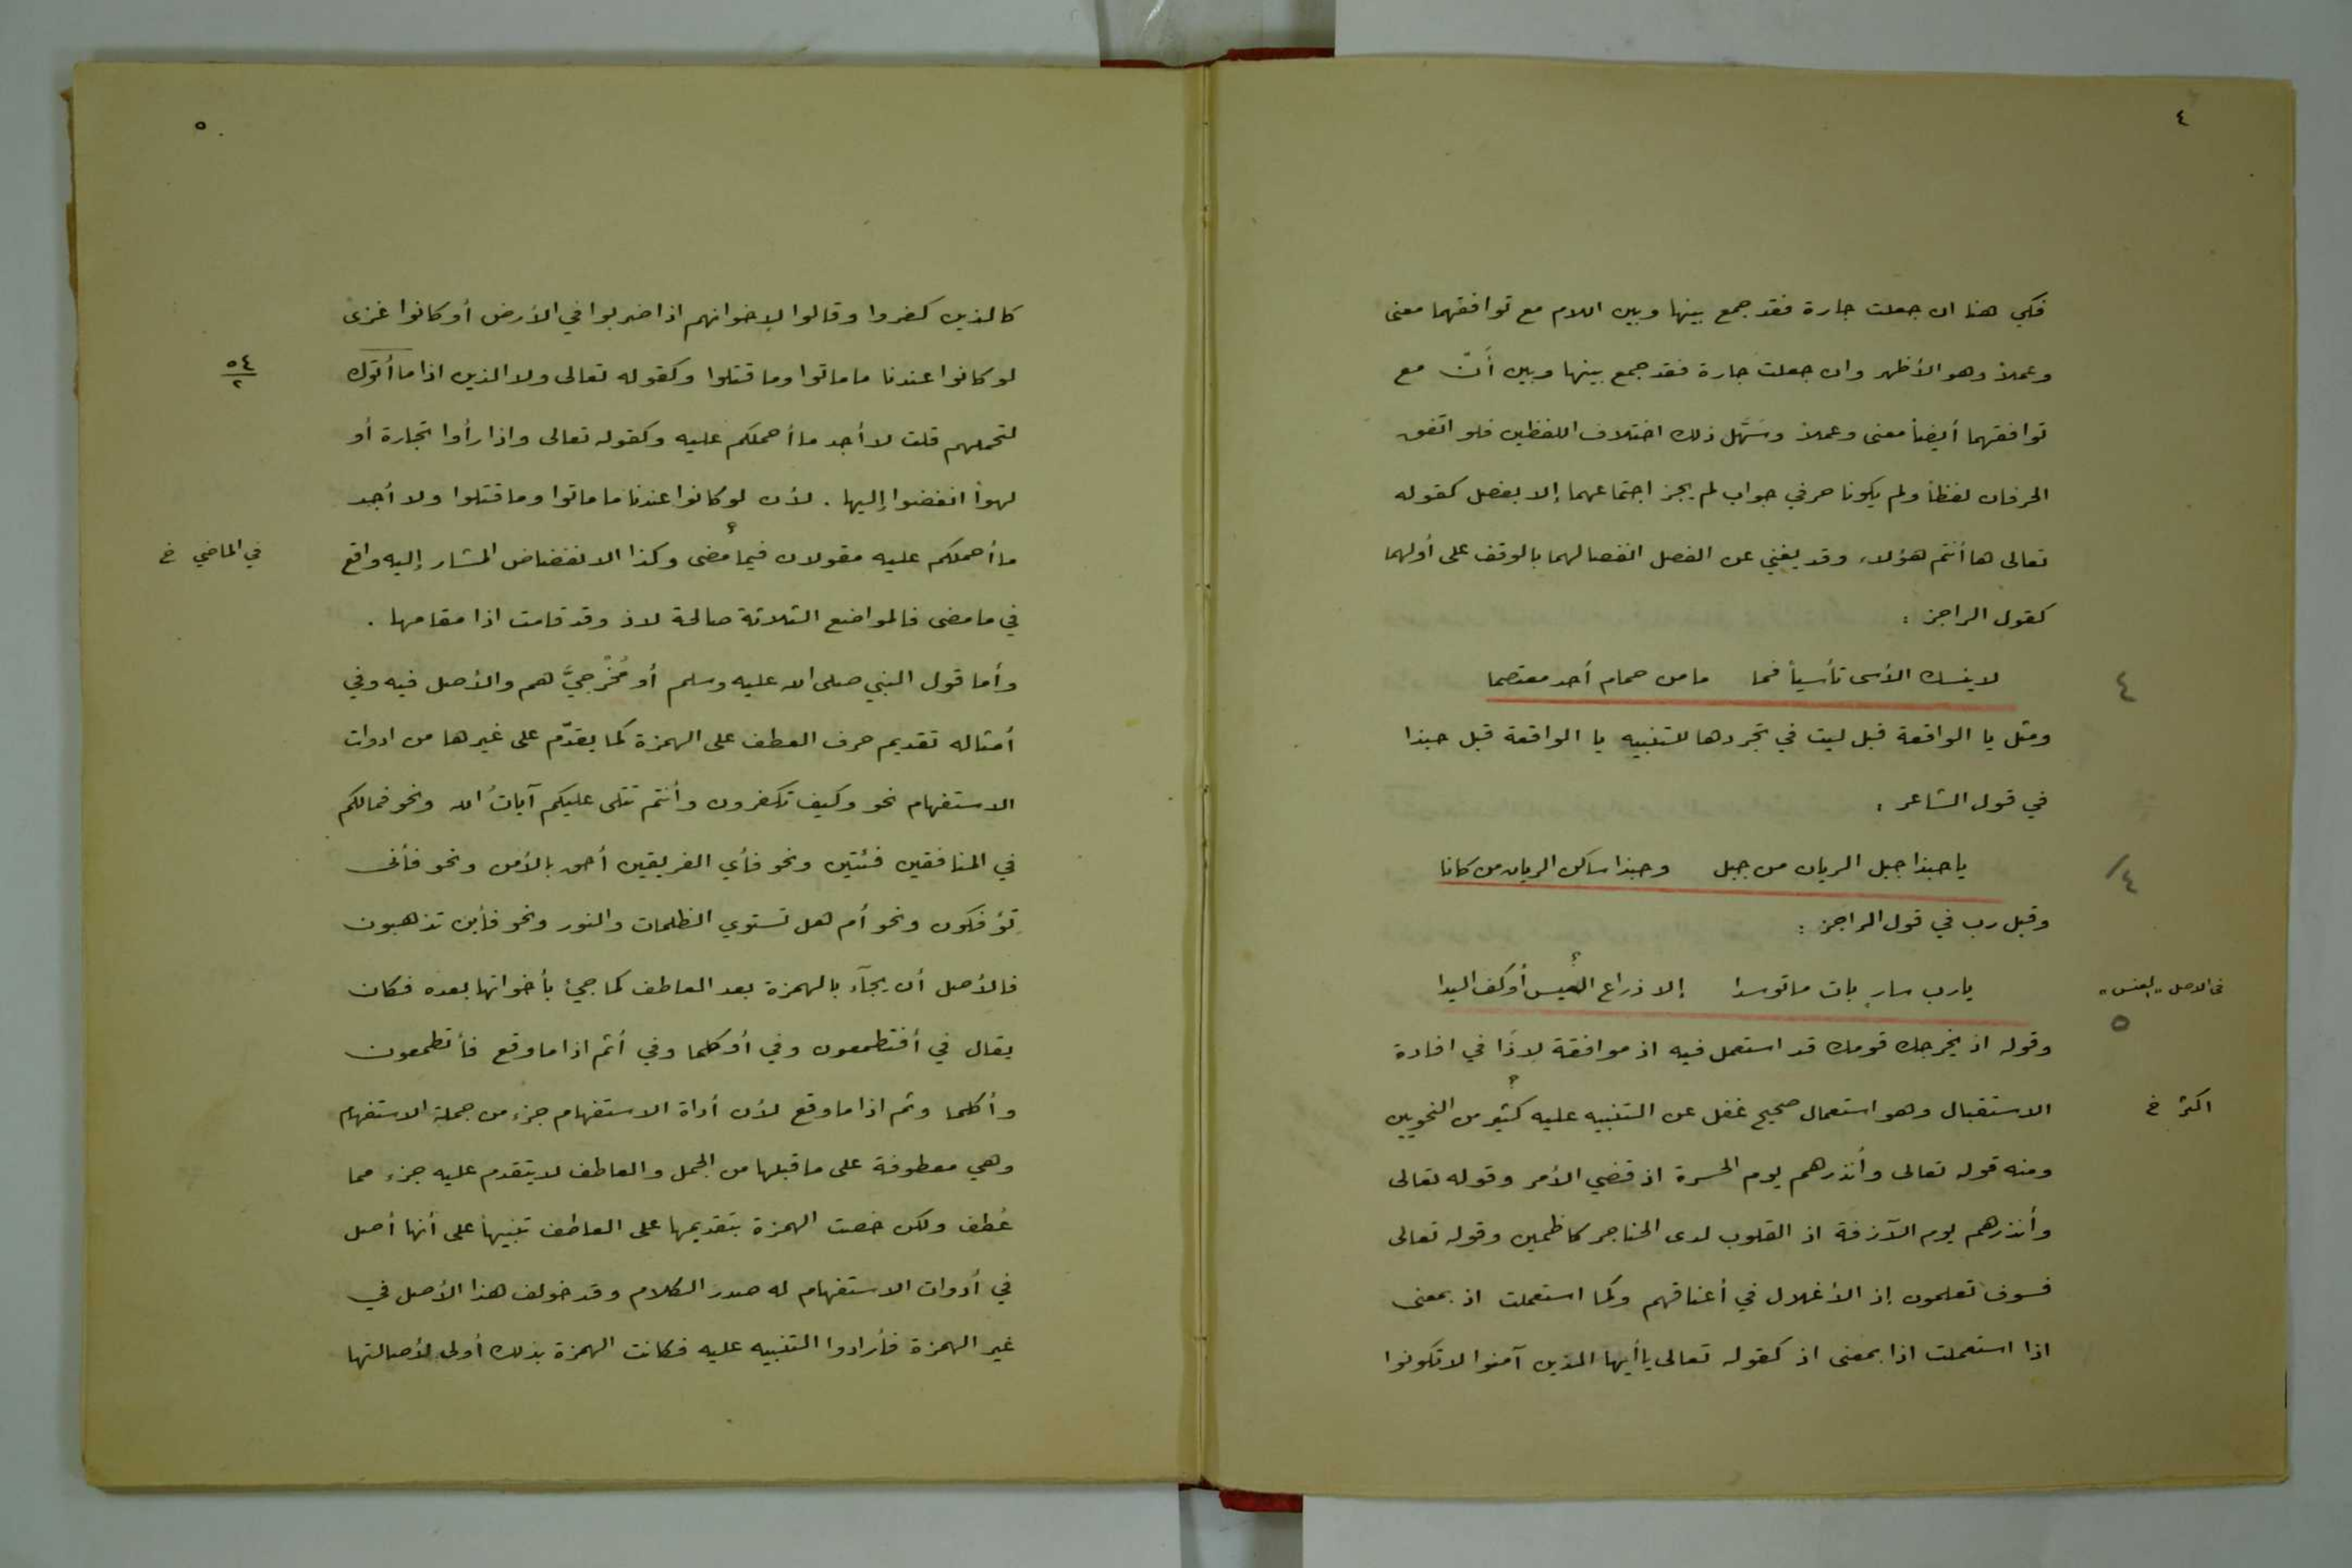 ٤
فكي هنا ان جعلت جارة فقد جمع بينها وبين اللام مع توافقهما معنى
وعملاً وهو الأظهر وان جعلت جارة فقد جمع بينها وبين أنّ مع
توافقهما أيضاً معنى وعملاً وسَهّل ذلك اختلاف اللفظين فلو اتفق
الحرفان لفظاً ولم يكونا حرفي جواب لم يجز اجتماعهما إلا بفصل كقوله
تعالى ها أنتم هؤلاء وقد يغني عن الفصل انفصالهما بالوقف على أولهما
كقول الراجز :
لا ينسك الأسى تأسياً فما ما من حمام أحد معتصما
٤
ومثل يا الواقعة قبل ليت في تجردها للتنبيه يا الواقعة قبل حبذا
في قول الشاعر :
يا حبذا جبل الريان من جبل وحبذا ساكن الريان من كانا
٤/
وقبل رب في قول الراجز :
يارب سارٍ بات ما توسدا إلا ذراع العيس أو كف اليدا
في الاصل "العنس"
٥
وقوله اذ يخرجك قومك قد استعمل فيه اذ موافقة لإذا في افادة
الاستقبال وهو استعمال صحيح غفل عن التنبيه عليه كثير من النحويين
اكثر خ
ومنه قوله تعالى وأنذرهم يوم الحسرة اذ قضي الأمر وقوله تعالى
وأنذرهم يوم الآزفة اذ القلوب لدى الحناجر كاظمين وقوله تعالى
فسوف تعلمون إذ الأغلال في أعناقهم وكما استعملت اذ بمعنى
اذا استعملت اذا بمعنى اذ كقوله تعالى يا أيها الذين آمنوا لا تكونوا
٥
كالذين كفروا وقالوا لإخوانهم اذا ضربوا في الأرض أو كانوا غزى
لو كانوا عندنا ما ماتوا وما قتلوا وكقوله تعالى ولا الذين اذا ما أتوك
٥٤
٢
لتحملهم قلت لا أجد ما أحملكم عليه وكقوله تعالى واذا رأوا تجارة أو
لهواً انفضوا إليها . لأن لو كانوا عندنا ما ماتوا وما قتلوا ولا أجد
ما أحملكم عليه مقولان فيما مضى وكذا الانفضاض المشار إليه واقع
في الماضي خ
في ما مضى فالمواضع الثلاثة صالحة لاذ وقد قامت اذا مقامها .
وأما قول النبي صلى الله عليه وسلم أو مُخْرِجِيَّ هم والأصل فيه وفي
أمثاله تقديم حرف العطف على الهمزة كما يقدّم على غيرها من ادوات
الاستفهام نحو وكيف تكفرون وأنتم تتلى عليكم آياتُ الله ونحو فمالكم
في المنافقين فئتين ونحو فأي الفريقين أحق بالأمن ونحو فأنى
تؤفكون ونحو أم هل تستوي الظلمات والنور ونحو فأين تذهبون
فالأصل أن يجآء بالهمزة بعد العاطف كما جيئ بأخواتها بعده فكان
يقال في أفتطمعون وفي أوكلما وفي أثم اذا ما وقع فأتطمعون
وأكلما وثم اذا ما وقع لأن أداة الاستفهام جزء من جملة الاستفهام
وهي معطوفة على ما قبلها من الجمل والعاطف لا يتقدم عليه جزء مما
عُطف ولكن خصت الهمزة بتقديمها على العاطف تنبيهاً على أنها أصل
في أدوات الاستفهام له صدر الكلام وقد خولف هذا الأصل في
غير الهمزة فأرادوا التنبيه عليه فكانت الهمزة بذلك أولى لأصالتها